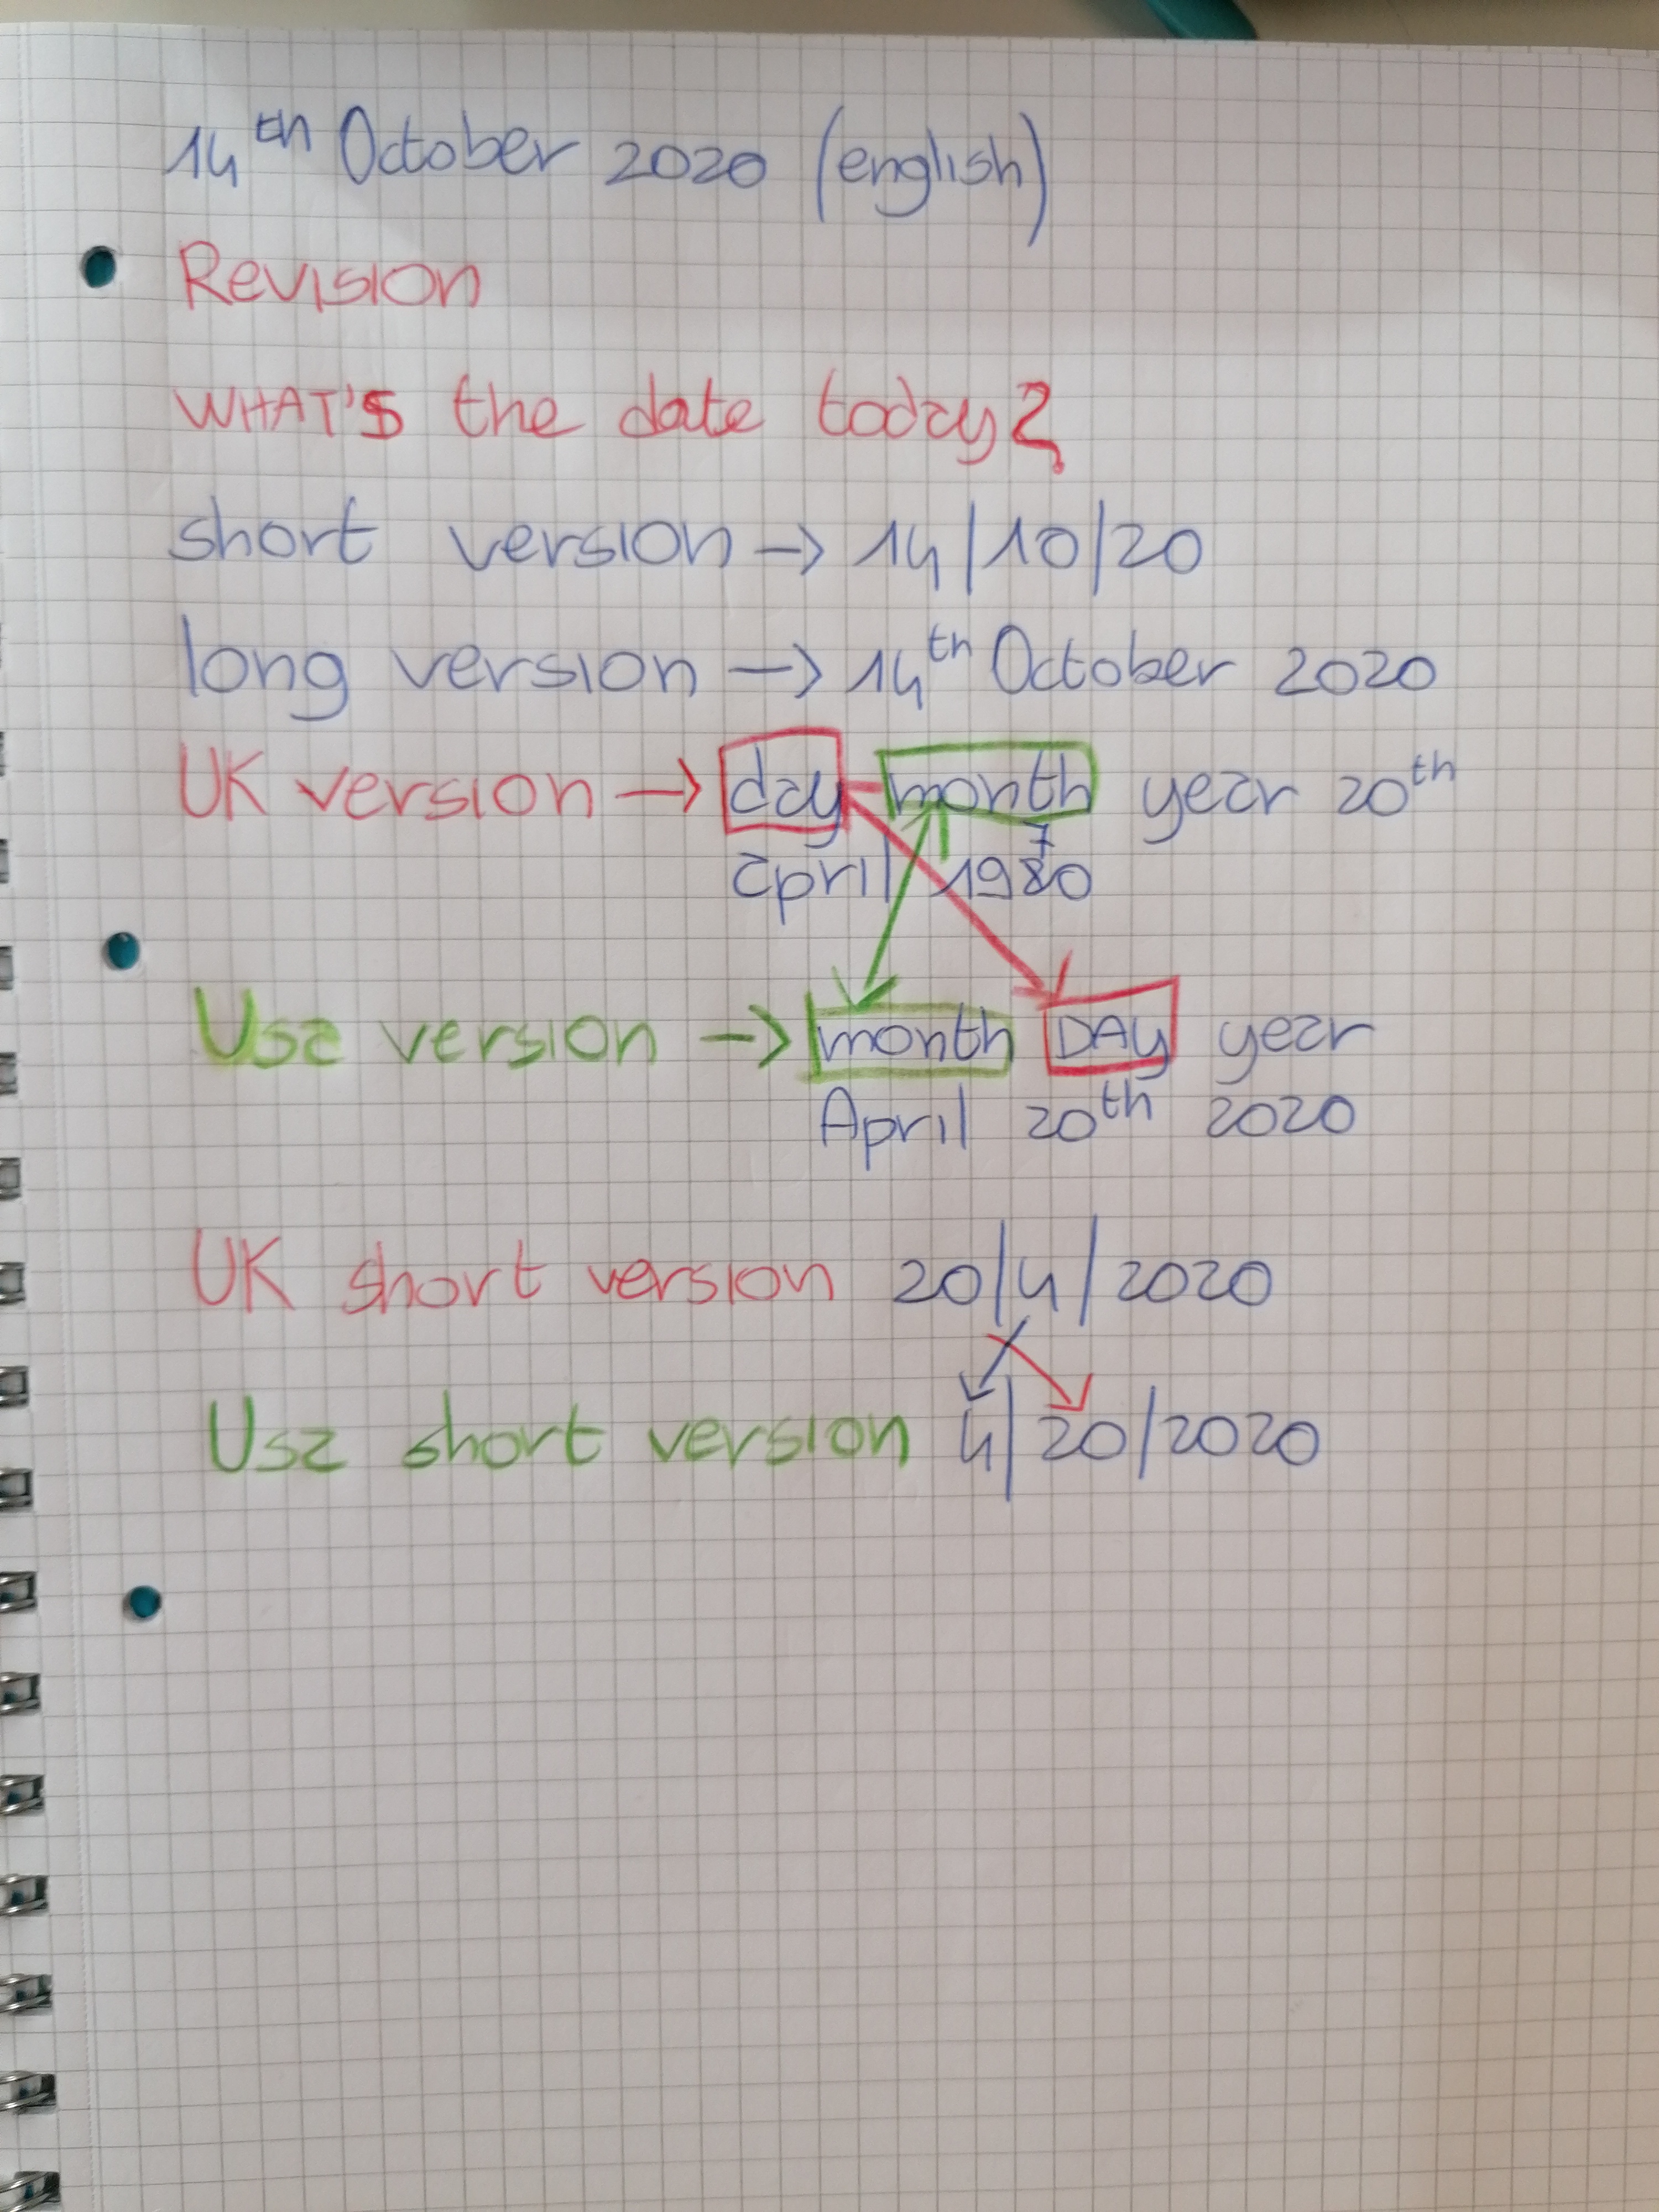 14th October 2020 (english)
Revision
WHAT'S the date today?
short version → 14/10/20
long version → 14th October 2020
UK version → day month year 20th
april 1970
Usa version → month DAY year
April 20th 2020
UK short version 20/4/2020
Usa short version 4/20/2020